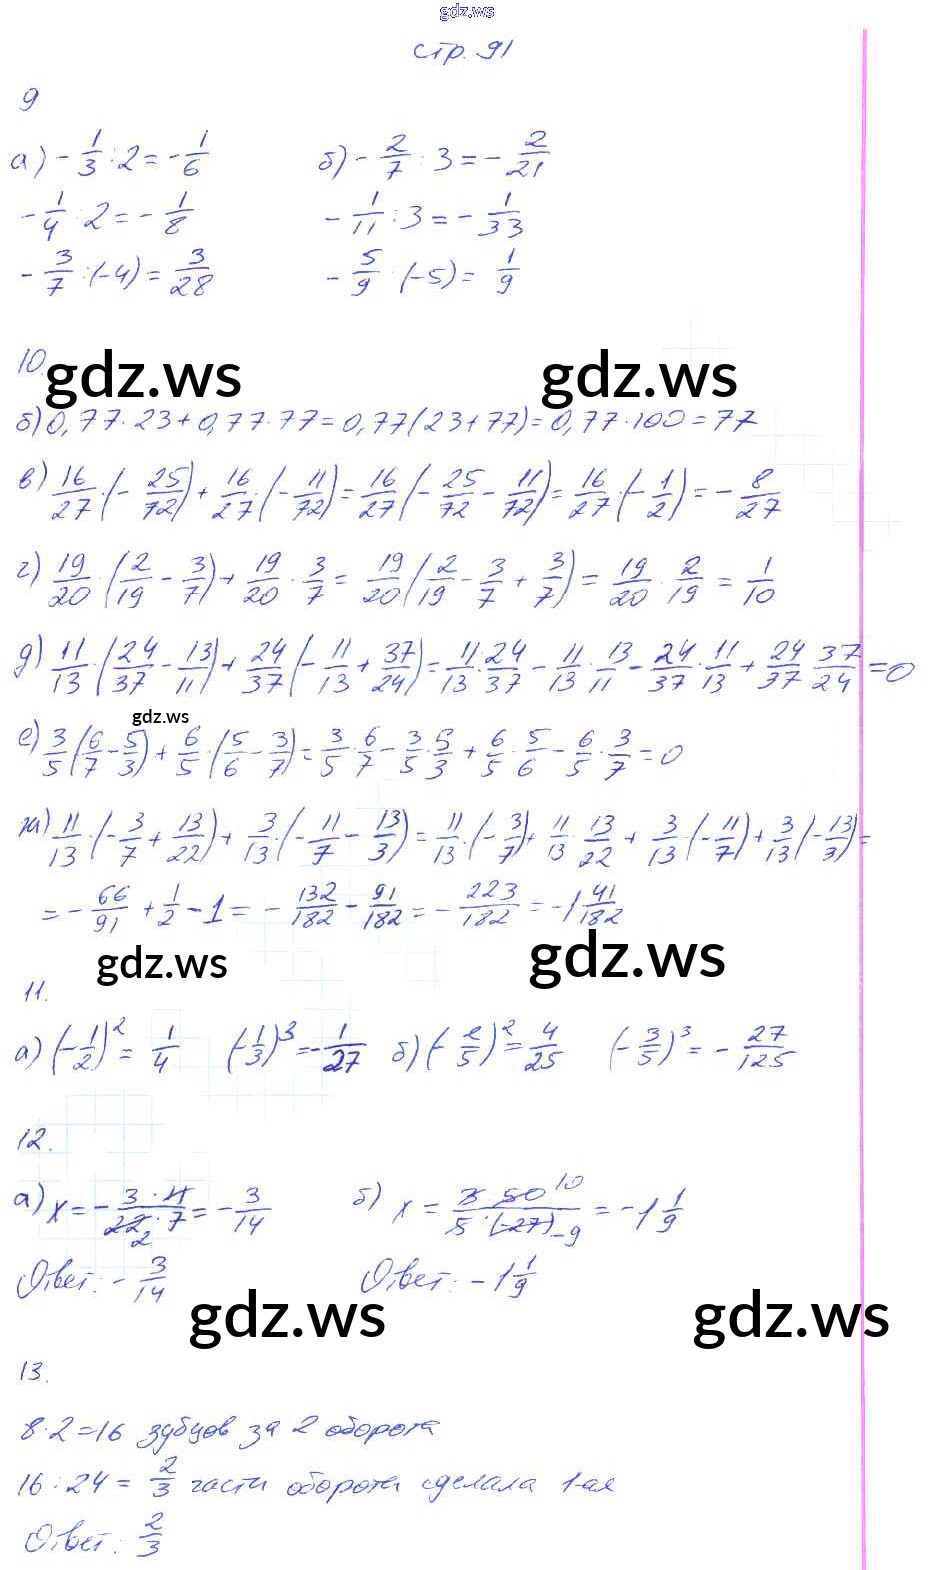 gdz.ws
стр. 91
9
а) -1/3 : 2 = -1/6   б) -2/7 : 3 = -2/21
-1/4 : 2 = -1/8   -1/11 : 3 = -1/33
-3/7 : (-4) = 3/28   -5/9 : (-5) = 1/9
10.
gdz.ws gdz.ws
б) 0,77·23+0,77·77=0,77(23+77)=0,77·100=77
в) 16/27·(-25/72)+16/27·(-11/72)=16/27(-25/72-11/72)=16/27·(-1/2)=-8/27
г) 19/20·(2/19-3/7)+19/20·3/7=19/20(2/19-3/7+3/7)=19/20·2/19=1/10
д) 11/13·(24/37-13/11)+24/37(-11/13+37/24)=11/13·24/37-11/13·13/11-24/37·11/13+24/37·37/24=0
gdz.ws
е) 3/5(6/7-5/3)+6/5·(5/6-3/7)=3/5·6/7-3/5·5/3+6/5·5/6-6/5·3/7=0
ж) 11/13·(-3/7+13/22)+3/13·(-11/7-13/3)=11/13·(-3/7)+11/13·13/22+3/13(-11/7)+3/13(-13/3)=
=-66/91+1/2-1=-132/182-91/182=-223/182=-1 41/182
gdz.ws gdz.ws
11.
а) (-1/2)²=1/4   (-1/3)³=-1/27   б) (-2/5)²=4/25   (-3/5)³=-27/125
12.
а) x=-3·11/22·7 2=-3/14   б) x=3·50 10/5·(-27) -9=-1 1/9
Ответ: -3/14   Ответ: -1 1/9
gdz.ws gdz.ws
13.
8·2=16 зубцов за 2 оборота
16:24=2/3 части оборота сделала 1-ая
Ответ: 2/3